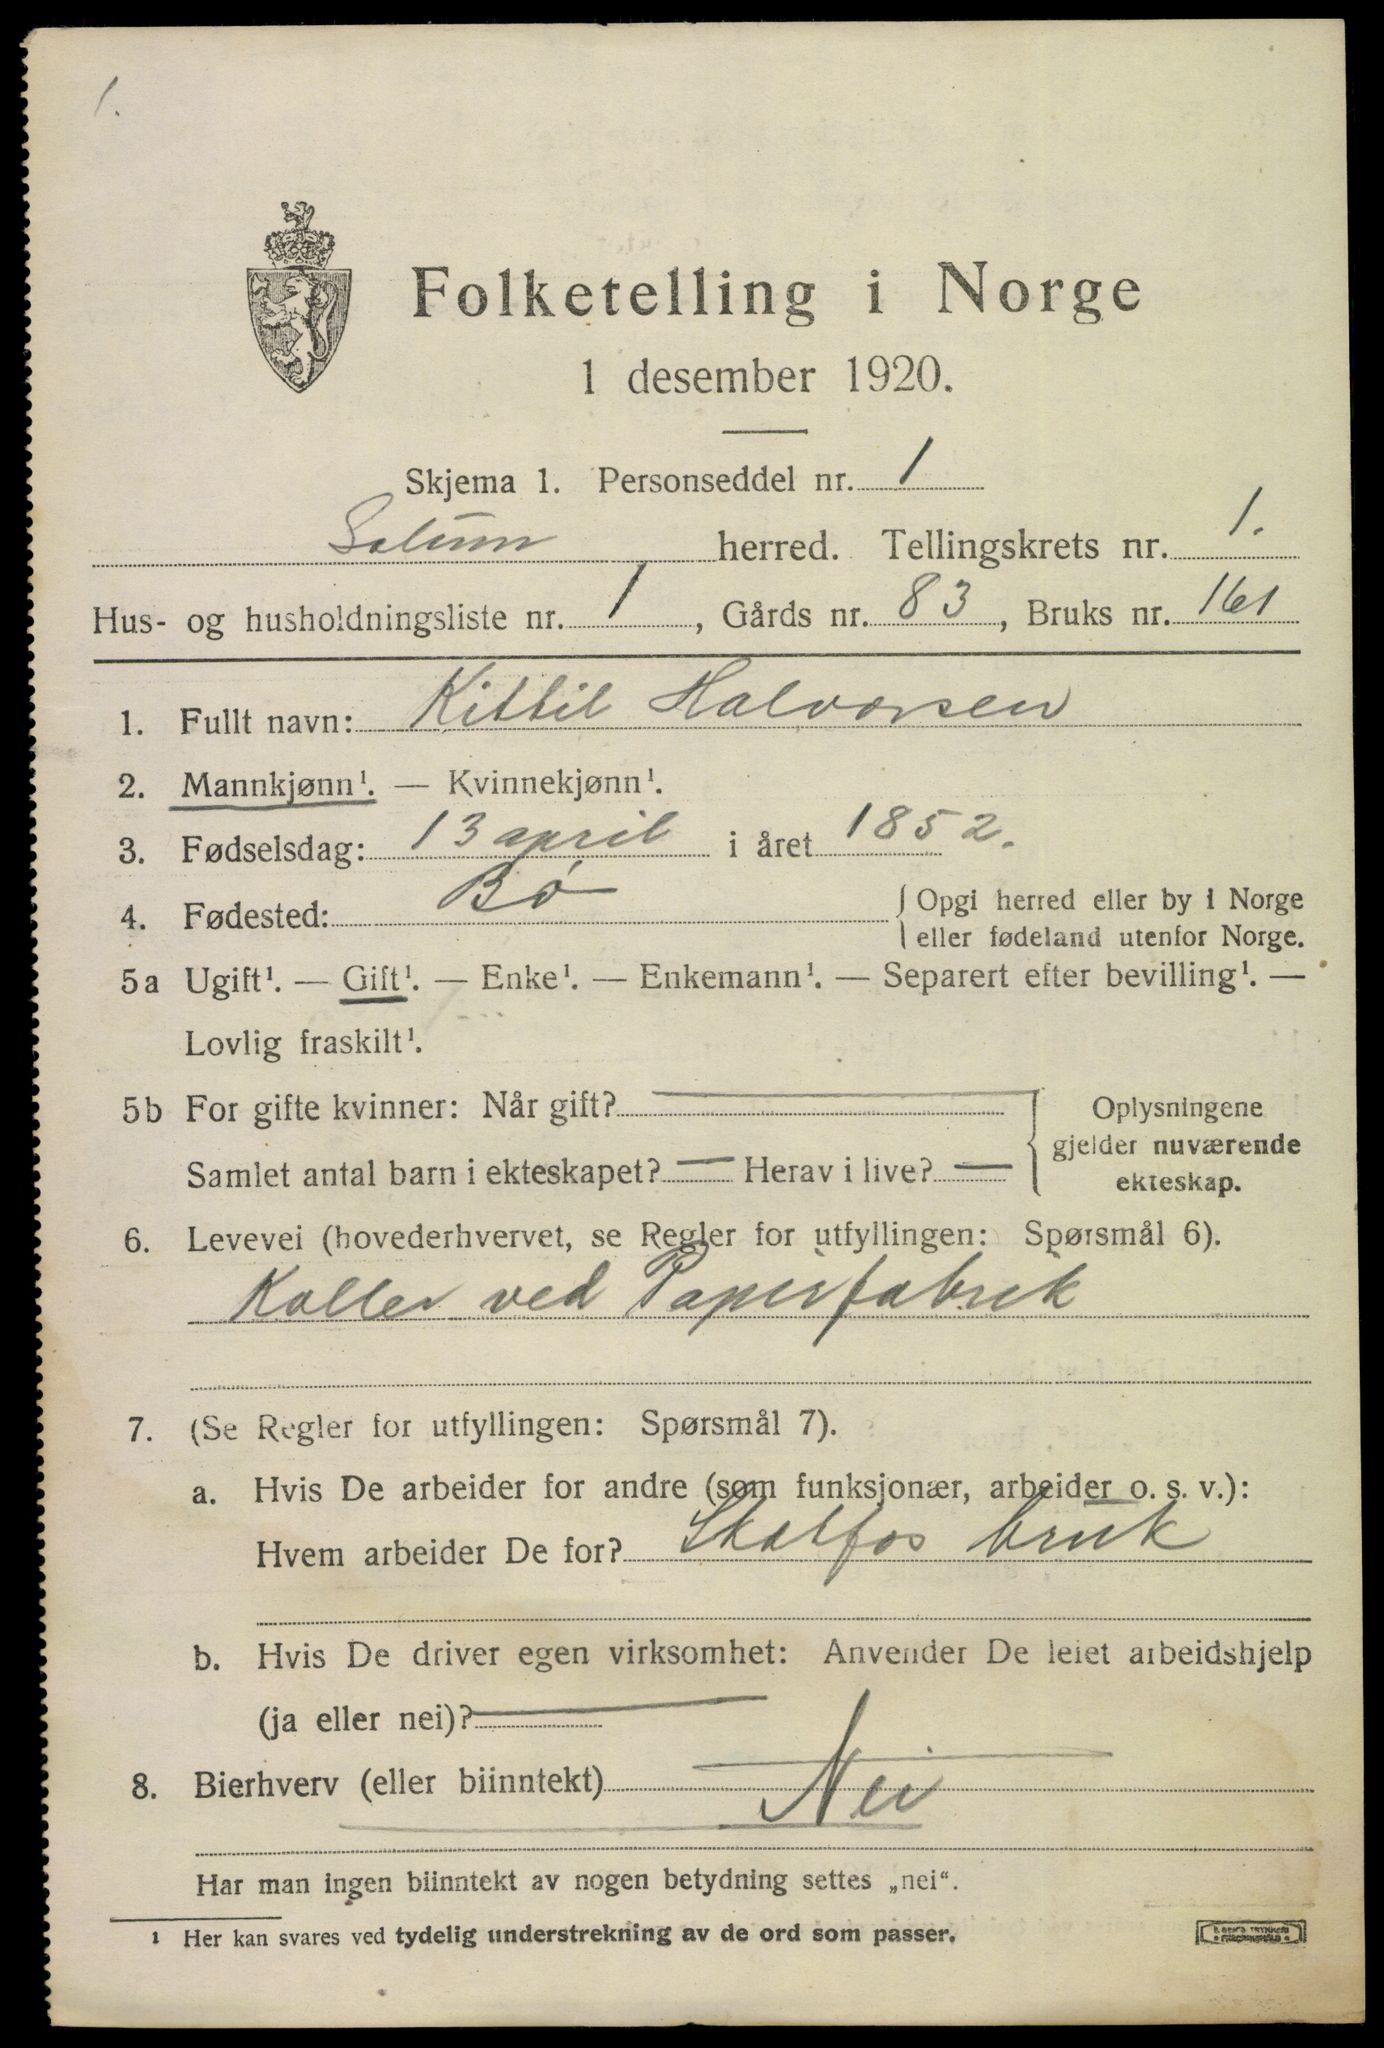 1.
Folketelling i Norge
1 desember 1920.
Skjema 1. Personseddel nr. 1
Solum herred. Tellingskrets nr. 1.
Hus- og husholdningsliste nr. 1, Gårds nr. 83, Bruks nr. 161
1. Fullt navn: Kittil Halvorsen
2. Mannkjønn¹. — Kvinnekjønn¹.
3. Fødselsdag: 13 april i året 1852.
4. Fødested: Bø { Opgi herred eller by i Norge
eller fødeland utenfor Norge.
5a Ugift¹. — Gift¹. — Enke¹. — Enkemann¹. — Separert efter bevilling¹. —
Lovlig fraskilt¹.
5b For gifte kvinner: Når gift? — Oplysningene
gjelder nuværende
Samlet antal barn i ekteskapet? — Herav i live? —
ekteskap.
6. Levevei (hovederhvervet, se Regler for utfyllingen: Spørsmål 6).
Koller ved Papirfabrik
7. (Se Regler for utfyllingen: Spørsmål 7).
a. Hvis De arbeider for andre (som funksjonær, arbeider o. s. v.):
Hvem arbeider De for? Skotfos bruk
b. Hvis De driver egen virksomhet: Anvender De leiet arbeidshjelp
(ja eller nei)? —
8. Bierhverv (eller biinntekt) Nei
Har man ingen biinntekt av nogen betydning settes „nei“.
¹ Her kan svares ved tydelig understrekning av de ord som passer.